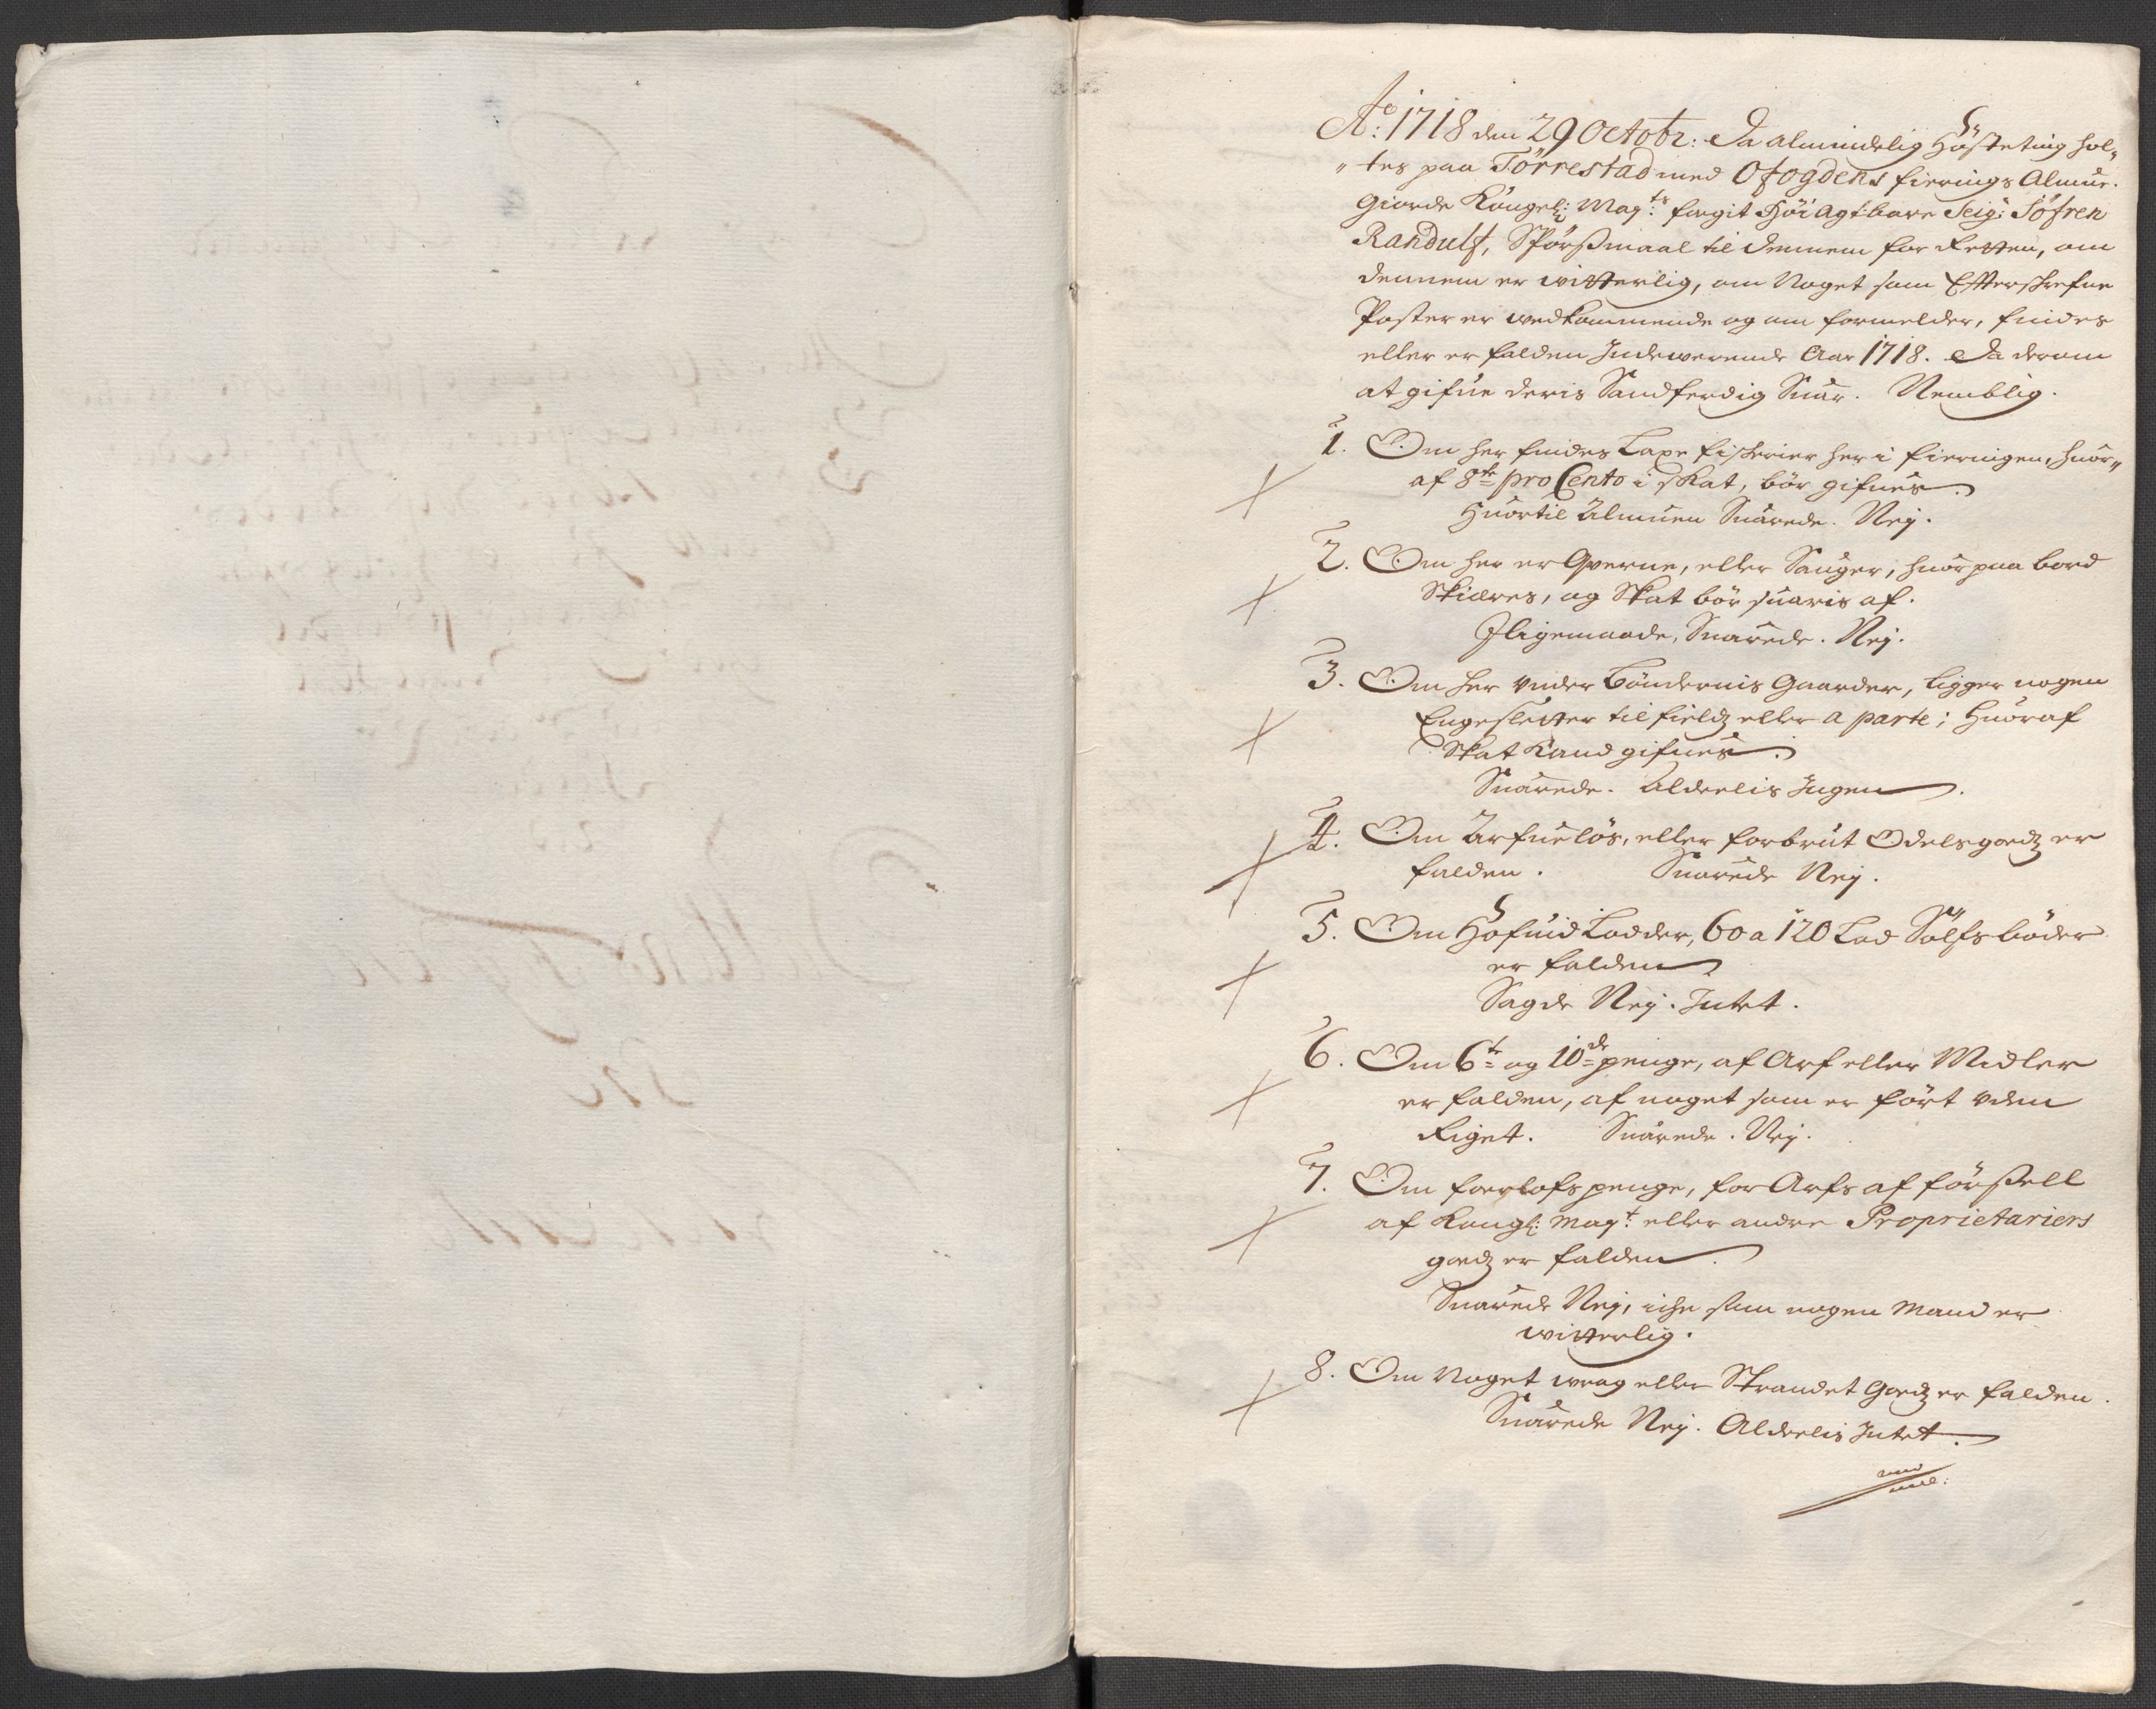 Ao: 1718 den 29 Octobr: Da almindelig Höste ting hol„
„tes paa Törrestad med Ofogdens fierings Almue.
Giorde Kongel: Mayts: fogit Höi Agtbare Seigr: Söfren
Randulf, Spörsmaal til dennem for Retten, om
dennem er witterlig, om Noget som Efterskrefne
Poster er wedkommende og om formelder, findes
eller er falden Indewerende Aar 1718. Da derom
at gifue deris Sandferdig Suar. Nemblig.
1. Om her findes Laxe fiskerier her i fieringen, huor„
af 8te pro Cento i skat, bör gifues.
Huortil Almuen Suarede. Nej.
2. Om her er Qverne, eller Sauger, huor paa bord
Skiæres, og Skat bör suaris af.
Jligemaade, Suarede. Nej.
3. Om her under Böndernis Gaarder, ligger nogen
Engesletter til fieldz eller a parte; Huoraf
Skat Kand gifues.
Suarede. Alderlis Ingen.
4. Om Arfuelös, eller forbrut Odelsgodz er
falden. Suarede Nej.
5. Om Hofuid Lodder, 60 a 120 Lod Sölfs böder
er falden
Sagde Nej. Intet.
6. Om 6te og 10de penge, af Arf eller Midler
er falden, af noget som er fört uden
Riget. Suarede. Nej.
7. Om forlofs penge, for Arfs afförsell
af Kongl: Mayt: eller andre Proprietariers
godz er falden.
Suarede Nej, iche som nogen Mand er
witterlig.
8. Om Noget wrag eller Strandet Godz er falden.
Suarede Nej. Alderlis Intet.